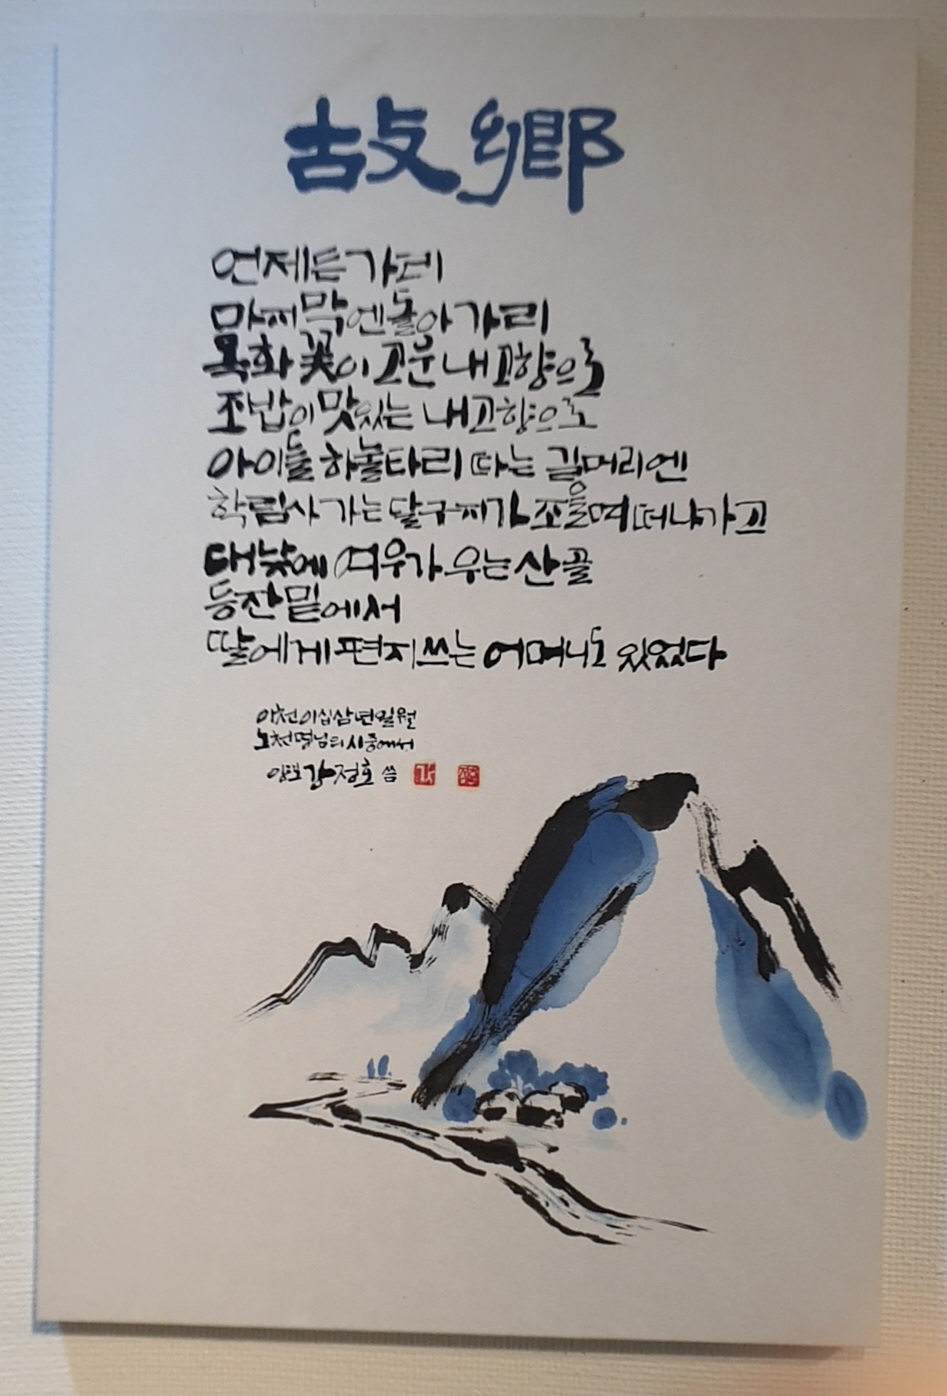 故鄕
언제든 가리
마지막엔 돌아가리
목화 꽃이 고운 내 고향으로
조밥이 맛있는 내 고향으로
아이들 하눌타리 따는 길머리엔
학림사 가는 달구지가 조을며 떠나가고
대낮에 여우가 우는 산골
등잔 밑에서
딸에게 편지 쓰는 어머니도 있었다
이천이십삼년일월
노천명님의 시중에서
강정호 씀